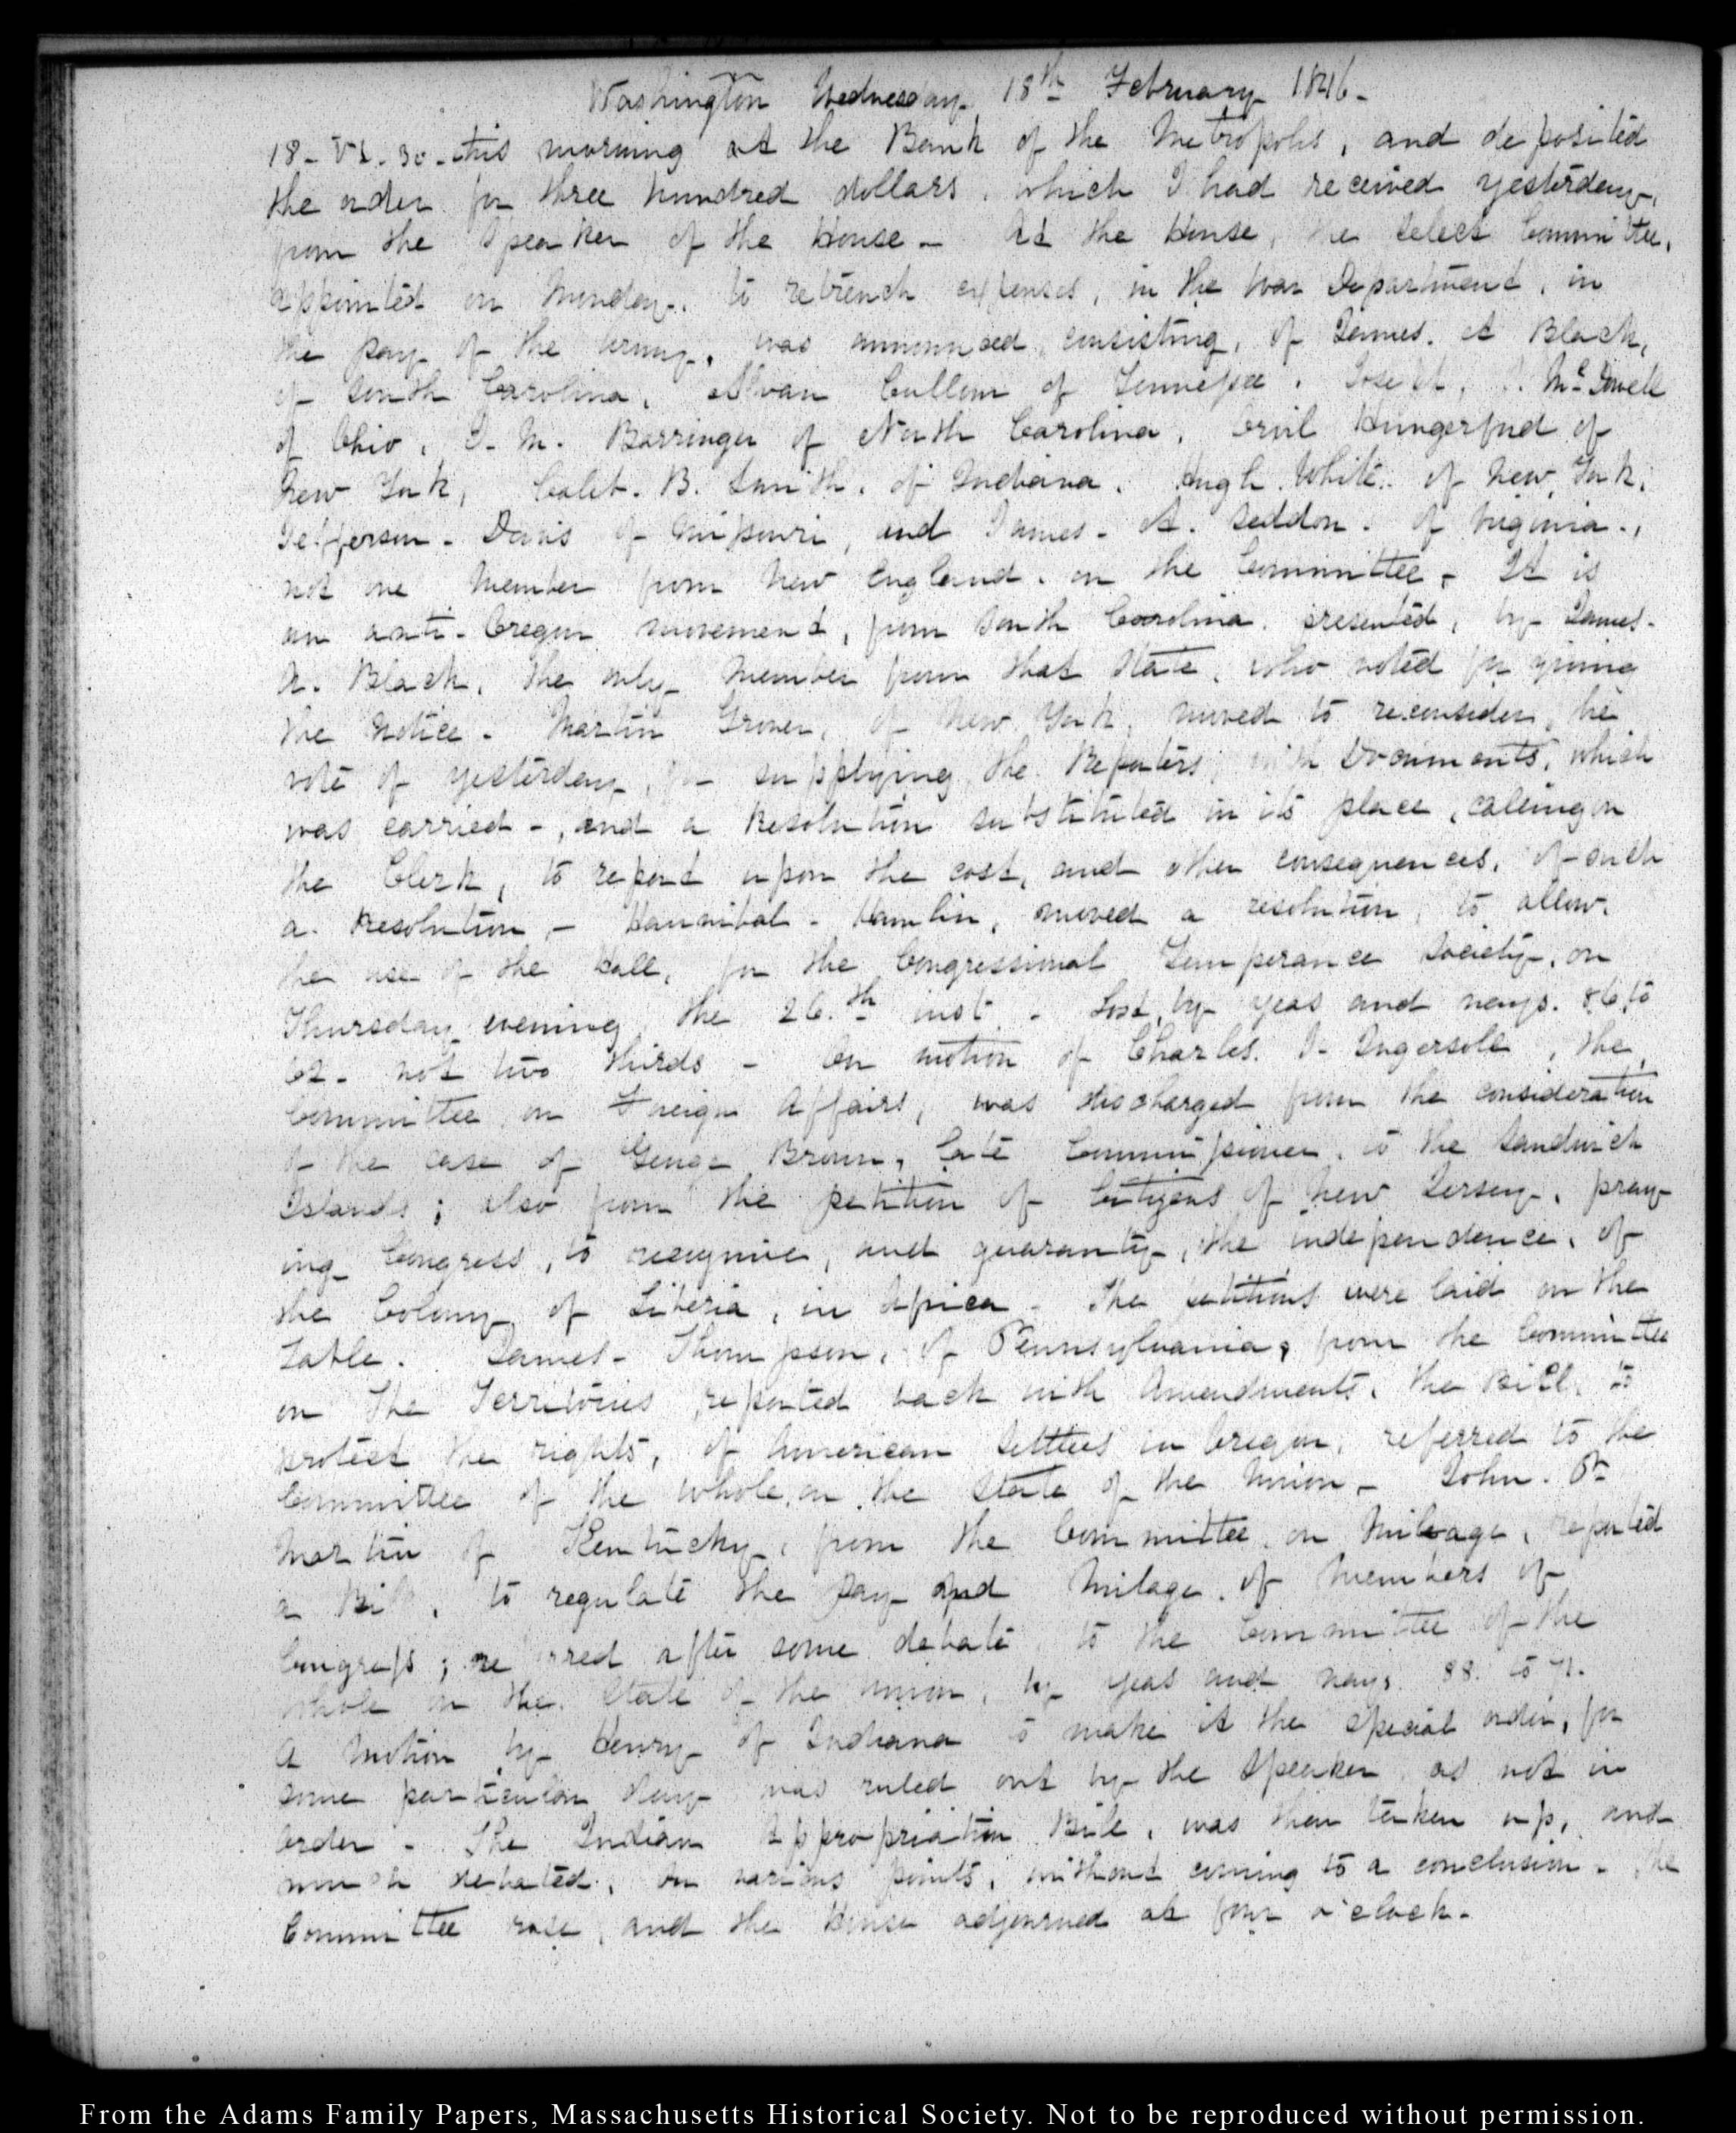 Washington Wednesday 18th February 1846-
18-VI.30-this morning at the Bank of the Metropolis, and deposited
the order for three hundred dollars, which I had received yesterday,
from the Speaker of the House - At the House, the select Committee,
appointed on Monday, to retrench expenses, in the War Department, in
the pay of the Army, was announced, consisting, of James. A Black,
of South Carolina, Alvan Cullom of Tennessee, Joseph, J. McDowell
of Ohio, D. M. Barringer of North Carolina, Orvil Hungerford of
New York, Caleb. B. Smith, of Indiana, Hugh White. of New York,
Jefferson - Davis of Missouri, and James - A. Seddon. of Virginia.,
not one Member from New England, on the Committee, - It is
an anti-Oregon movement, from South Carolina, presented, by James-
A. Black, the only Member from that State, who voted for giving
the Notice - Martin Grover, of New York, moved to reconsider, the
vote of yesterday, for supplying the Reporters, with Documents, which
was carried -, and a Resolution substituted in its place, calling on
the Clerk, to report upon the cost, and other consequences, of such
a. Resolution, - Hannibal - Hamlin, moved a resolution, to allow,
the use of the Hall, for the Congressional Temperance Society, on
Thursday evening, the 26.th inst. - Lost, by yeas and nays. 86 to
62 - not two thirds - On motion of Charles. J. Ingersoll, the,
Committee on Foreign Affairs, was discharged from the consideration
of the case of George Brown, late Commissioner, to the Sandwich
Islands; also from the petition of Citizens of New Jersey, pray-
ing Congress, to recognise, and guaranty, the independence, of
the Colony of Liberia, in Africa - The petitions were laid on the
Table. James - Thompson, of Pennsylvania, from the Committee
on The Territories, reported back with Amendments, the Bill, to
protect the rights, of American Settlers in Oregon, referred to the
Committee of the whole, on the State of the Union, - John. P.
Martin of Kentucky, from the Committee on Mileage, reported
a Bill, to regulate the pay and Milage of Members of
Congress; referred after some debate, to the Committee of the
whole on the State of the Union, by yeas and nays 88. to 71.
A Motion by Henry of Indiana to make it the special order, for
some particular day was ruled out by the Speaker, as not in
order - The Indian Appropriation Bill, was then taken up, and
much debated, on various points, without coming to a conclusion - The
Committee rose, and the House adjourned at four o'clock.
From the Adams Family Papers, Massachusetts Historical Society. Not to be reproduced without permission.